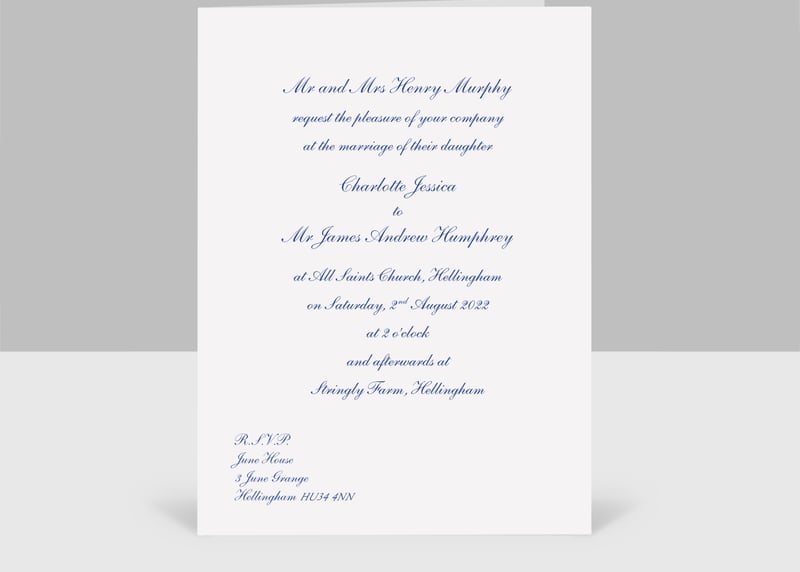 Mr and Mrs Henry Murphy
request the pleasure of your company
at the marriage of their daughter
Charlotte Jessica
to
Mr James Andrew Humphrey
at All Saints Church, Hellingham
on Saturday, 2nd August 2022
at 2 o'clock
and afterwards at
Stringly Farm, Hellingham
R.S.V.P.
June House
3 June Grange
Hellingham HU34 4NN